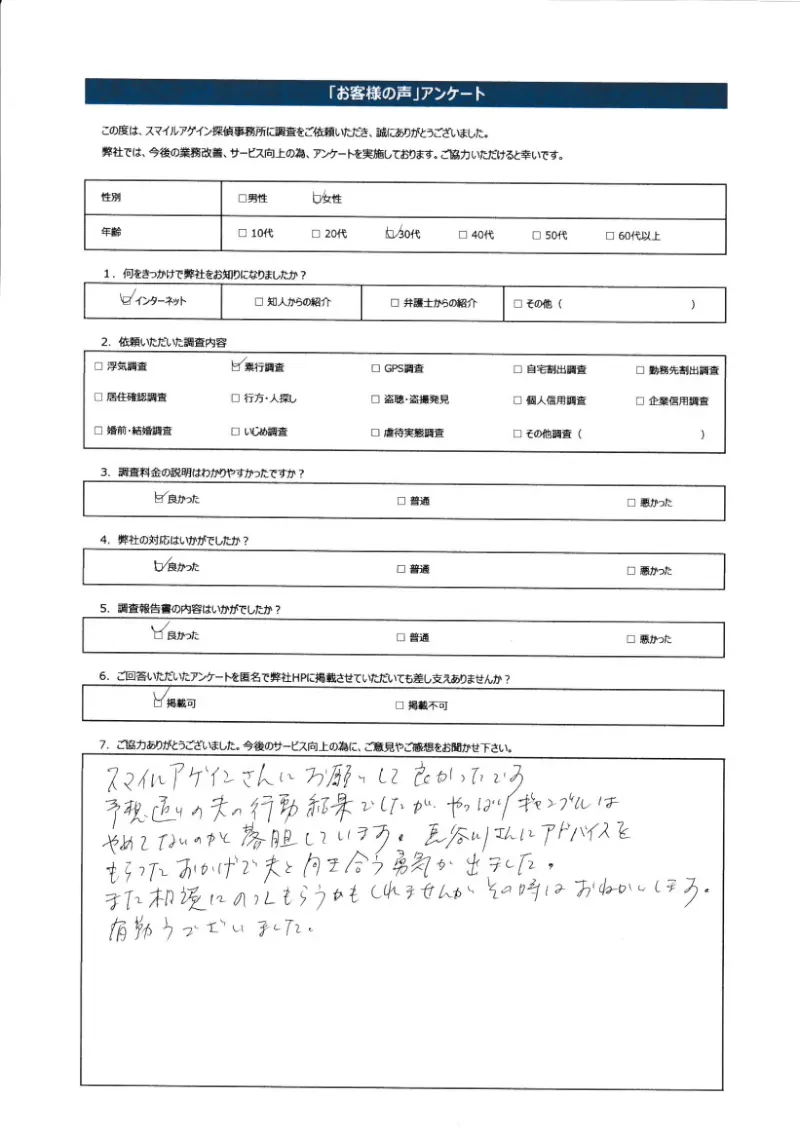 「お客様の声」アンケート
この度は、スマイルアゲイン探偵事務所に調査をご依頼いただき、誠にありがとうございました。
弊社では、今後の業務改善、サービス向上の為、アンケートを実施しております。ご協力いただけると幸いです。
性別 □男性 ☑女性
年齢 □ 10代 □ 20代 ☑30代 □ 40代 □ 50代 □ 60代以上
1．何をきっかけで弊社をお知りになりましたか？
☑インターネット □ 知人からの紹介 □ 弁護士からの紹介 □ その他（ ）
2．依頼いただいた調査内容
□ 浮気調査 ☑素行調査 □ GPS調査 □ 自宅割出調査 □ 勤務先割出調査
□ 居住確認調査 □ 行方・人探し □ 盗聴・盗撮発見 □ 個人信用調査 □ 企業信用調査
□ 婚前・結婚調査 □ いじめ調査 □ 虐待実態調査 □ その他調査（ ）
3．調査料金の説明はわかりやすかったですか？
☑良かった □ 普通 □ 悪かった
4．弊社の対応はいかがでしたか？
☑良かった □ 普通 □ 悪かった
5．調査報告書の内容はいかがでしたか？
☑良かった □ 普通 □ 悪かった
6．ご回答いただいたアンケートを匿名で弊社HPに掲載させていただいても差し支えありませんか？
☑掲載可 □ 掲載不可
7．ご協力ありがとうございました。今後のサービス向上の為に、ご意見やご感想をお聞かせ下さい。
スマイルアゲインさんにお願いして良かったです
予想通りの夫の行動結果でしたが、やっぱりギャンブルは
やめてないのかと落胆しています。長谷川さんにアドバイスを
もらったおかげで夫と向き合う勇気が出ました。
また相談にのってもらうかもしれませんがその時はおねがいします。
有難うございました。